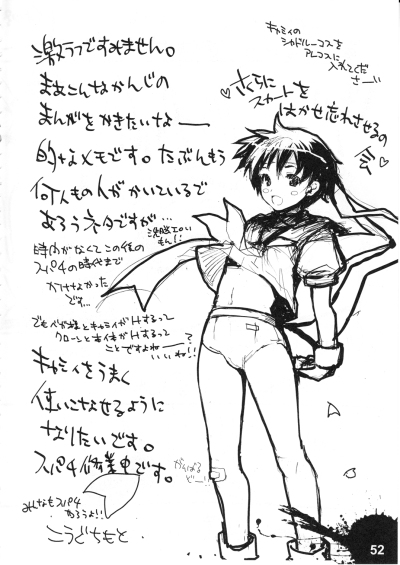 激ラフですみません。
まあこんなかんじの
まんがをかきたいなー
的なメモです。たぶんもう
何人もの人がかいているで
あろうネタですが…
時間がなくてこの後の
スパ4の時代まで
かけなかった
です…
でもベガ様とキャミィがHするって
クローンと本体がHするって
ことですよねー?
いいね!!
キャミィをうまく
使いこなせるように
なりたいです。
スパ4修業中です。
がんばるどー
みんなもスパ4
やろうよ!!
こうぐちもと
キャミィの
シャドルーコスを
アレコスに
入れてくだ
さーい
さくらに
スカートを
はかせ忘れさせるの
会
52